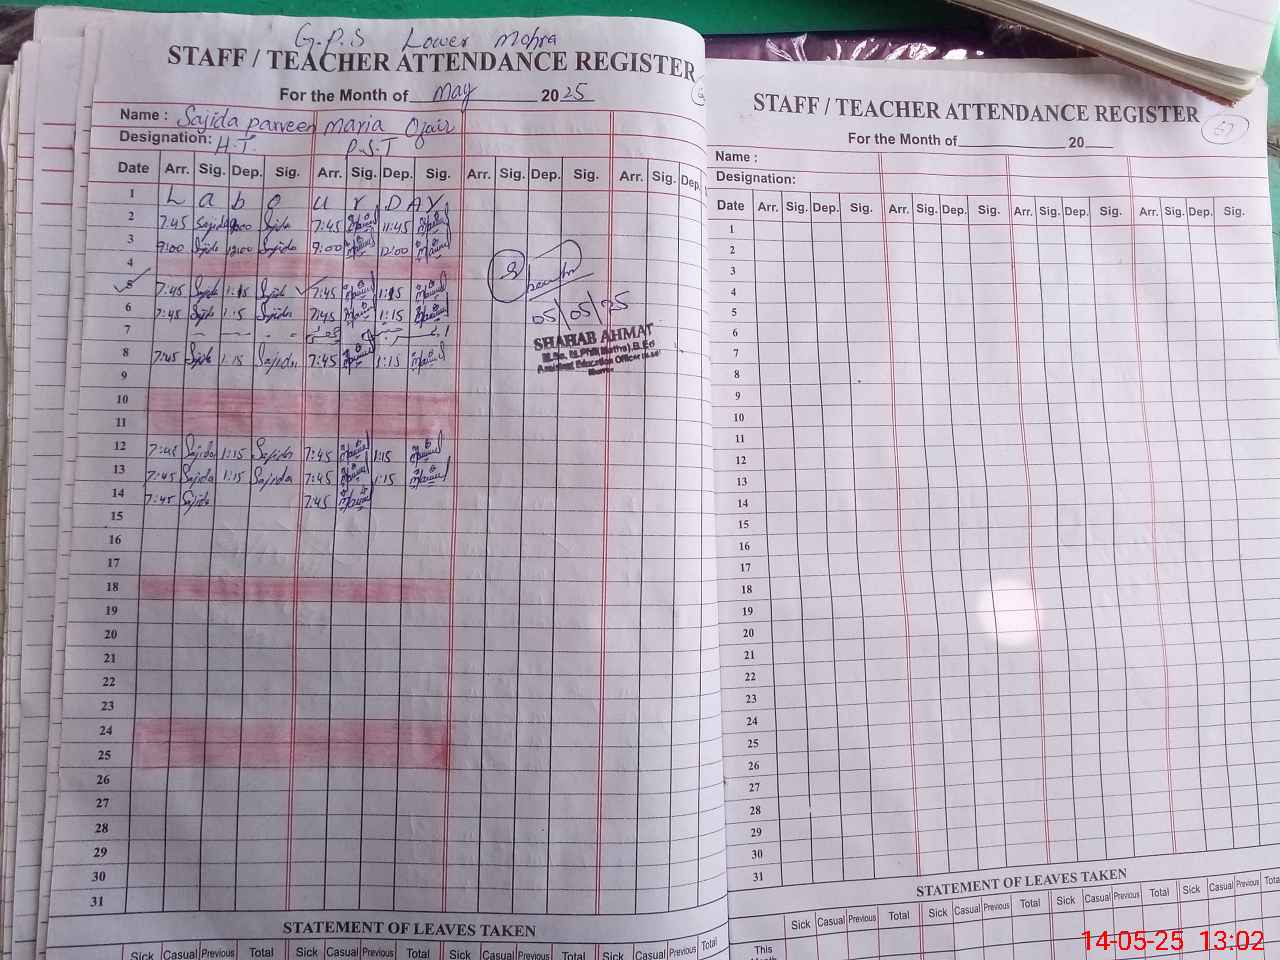 G.P.S Lower Mohra
STAFF / TEACHER ATTENDANCE REGISTER
For the Month of May 2025
Name : Sajida parveen Maria
Designation: H.T. P.S.T
Date Arr. Sig. Dep. Sig. Arr. Sig. Dep. Sig. Arr. Sig. Dep. Sig. Arr. Sig. Dep.
1 L a b o u r D A Y
2 7:45 Sajida Sajida 7:45 11:45
3 9:00 Sajida 12:00 Sajida 9:00 12:00
4
5 7:45 Sajida 1:15 Sajida 7:45 1:15
6 7:45 Sajida 1:15 Sajida 7:45 1:15
7
8 7:45 Sajida 1:15 Sajida 7:45 1:15
9
10
11
12 7:45 Sajida 1:15 Sajida 7:45 1:15
13 7:45 Sajida 1:15 Sajida 7:45 1:15
14 7:45 Sajida 7:45
15
16
17
18
19
20
21
22
23
24
25
26
27
28
29
30
31
05/05/25
SHAHAB AHMAT
Assistant Education Officer
STATEMENT OF LEAVES TAKEN
Sick Casual Previous Total Sick Casual Previous Total Sick Casual Previous Total Sick Casual Previous Total
STAFF / TEACHER ATTENDANCE REGISTER
67
For the Month of 20
Name :
Designation:
Date Arr. Sig. Dep. Sig. Arr. Sig. Dep. Sig. Arr. Sig. Dep. Sig. Arr. Sig. Dep. Sig.
1
2
3
4
5
6
7
8
9
10
11
12
13
14
15
16
17
18
19
20
21
22
23
24
25
26
27
28
29
30
31
STATEMENT OF LEAVES TAKEN
Sick Casual Previous Total Sick Casual Previous Total Sick Casual Previous Total Sick Casual Previous Total
This
14-05-25 13:02